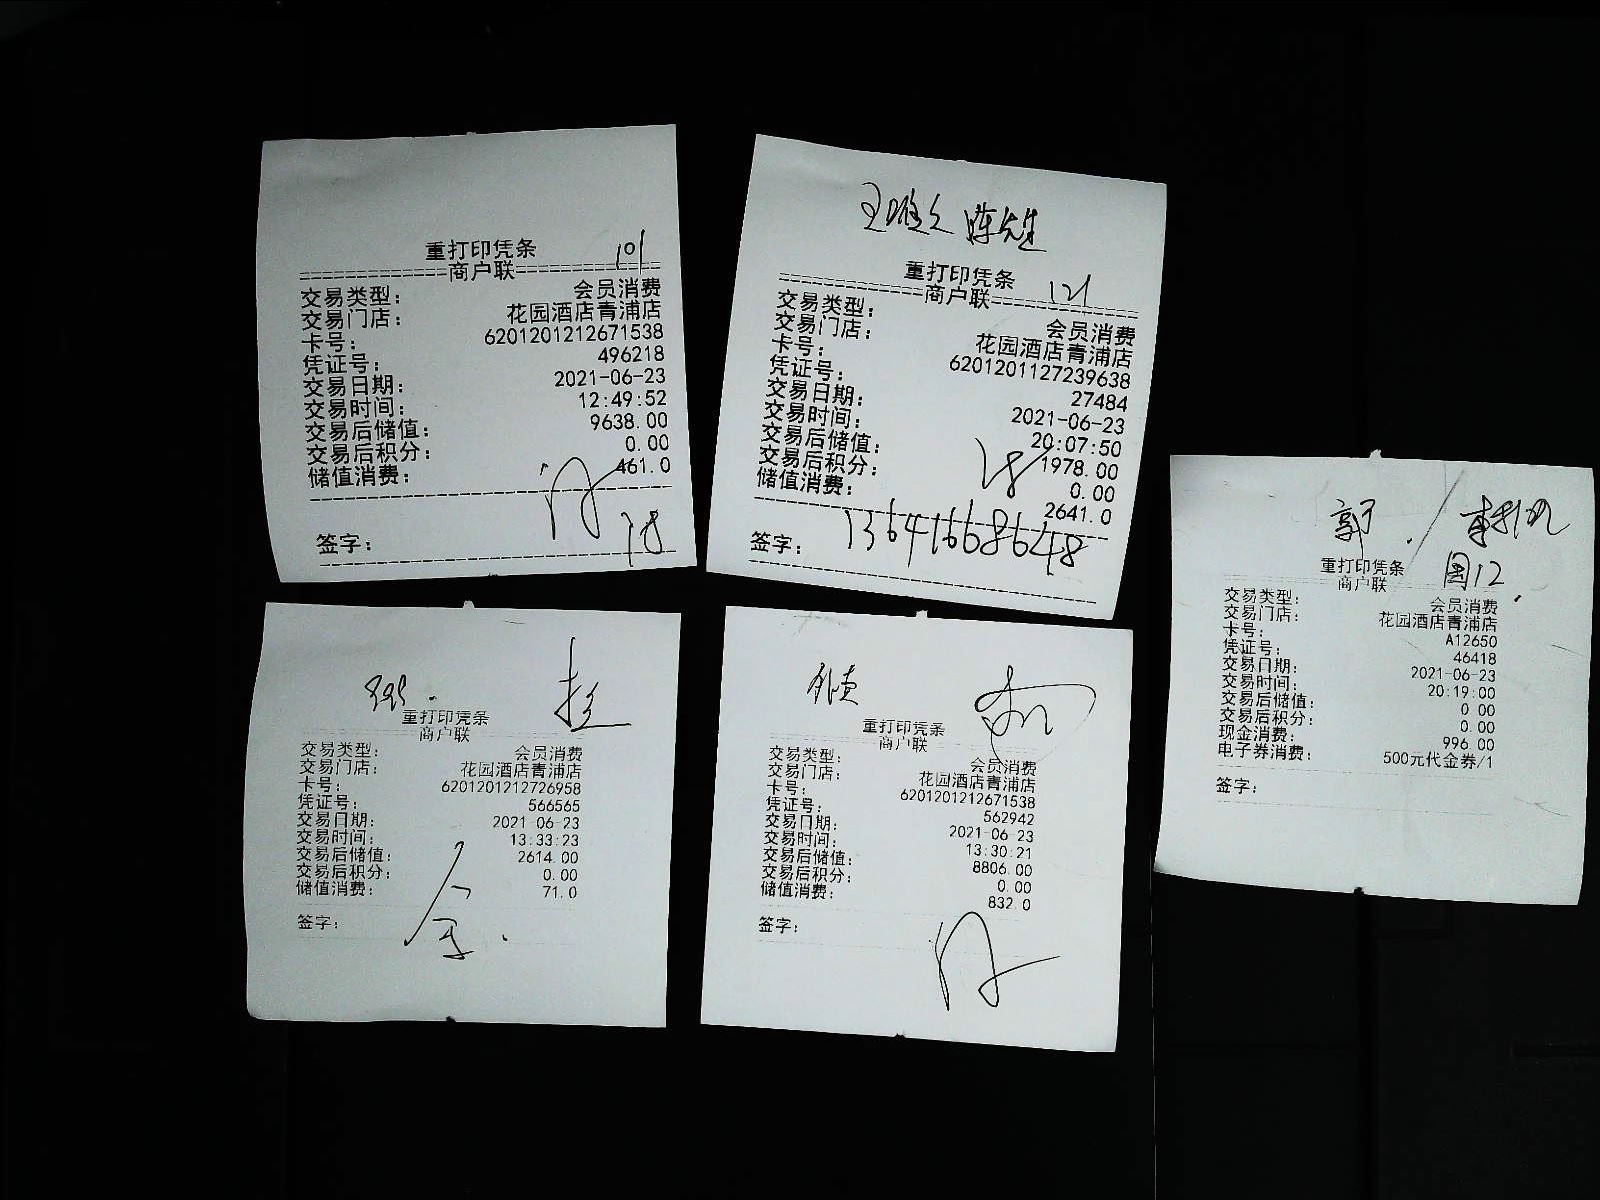 重打印凭条
101
商户联
交易类型： 会员消费
交易门店： 花园酒店青浦店
卡号： 6201201212671538
凭证号： 496218
交易日期： 2021-06-23
交易时间： 12:49:52
交易后储值： 9638.00
交易后积分： 0.00
储值消费： 461.0
签字：
陈先生
重打印凭条
121
商户联
交易类型： 会员消费
交易门店： 花园酒店青浦店
卡号： 6201201127239638
凭证号： 27484
交易日期： 2021-06-23
交易时间： 20:07:50
交易后储值： 1978.00
交易后积分： 0.00
储值消费： 2641.0
签字： 13641668648
郭
重打印凭条
国12
商户联
交易类型： 会员消费
交易门店： 花园酒店青浦店
卡号： A12650
凭证号： 46418
交易日期： 2021-06-23
交易时间： 20:19:00
交易后储值： 0.00
交易后积分： 0.00
现金消费： 996.00
电子券消费： 500元代金券/1
签字：
重打印凭条
商户联
交易类型： 会员消费
交易门店： 花园酒店青浦店
卡号： 6201201212726958
凭证号： 566565
交易日期： 2021-06-23
交易时间： 13:33:23
交易后储值： 2614.00
交易后积分： 0.00
储值消费： 71.0
签字：
重打印凭条
商户联
交易类型： 会员消费
交易门店： 花园酒店青浦店
卡号： 6201201212671538
凭证号： 562942
交易日期： 2021-06-23
交易时间： 13:30:21
交易后储值： 8806.00
交易后积分： 0.00
储值消费： 832.0
签字：